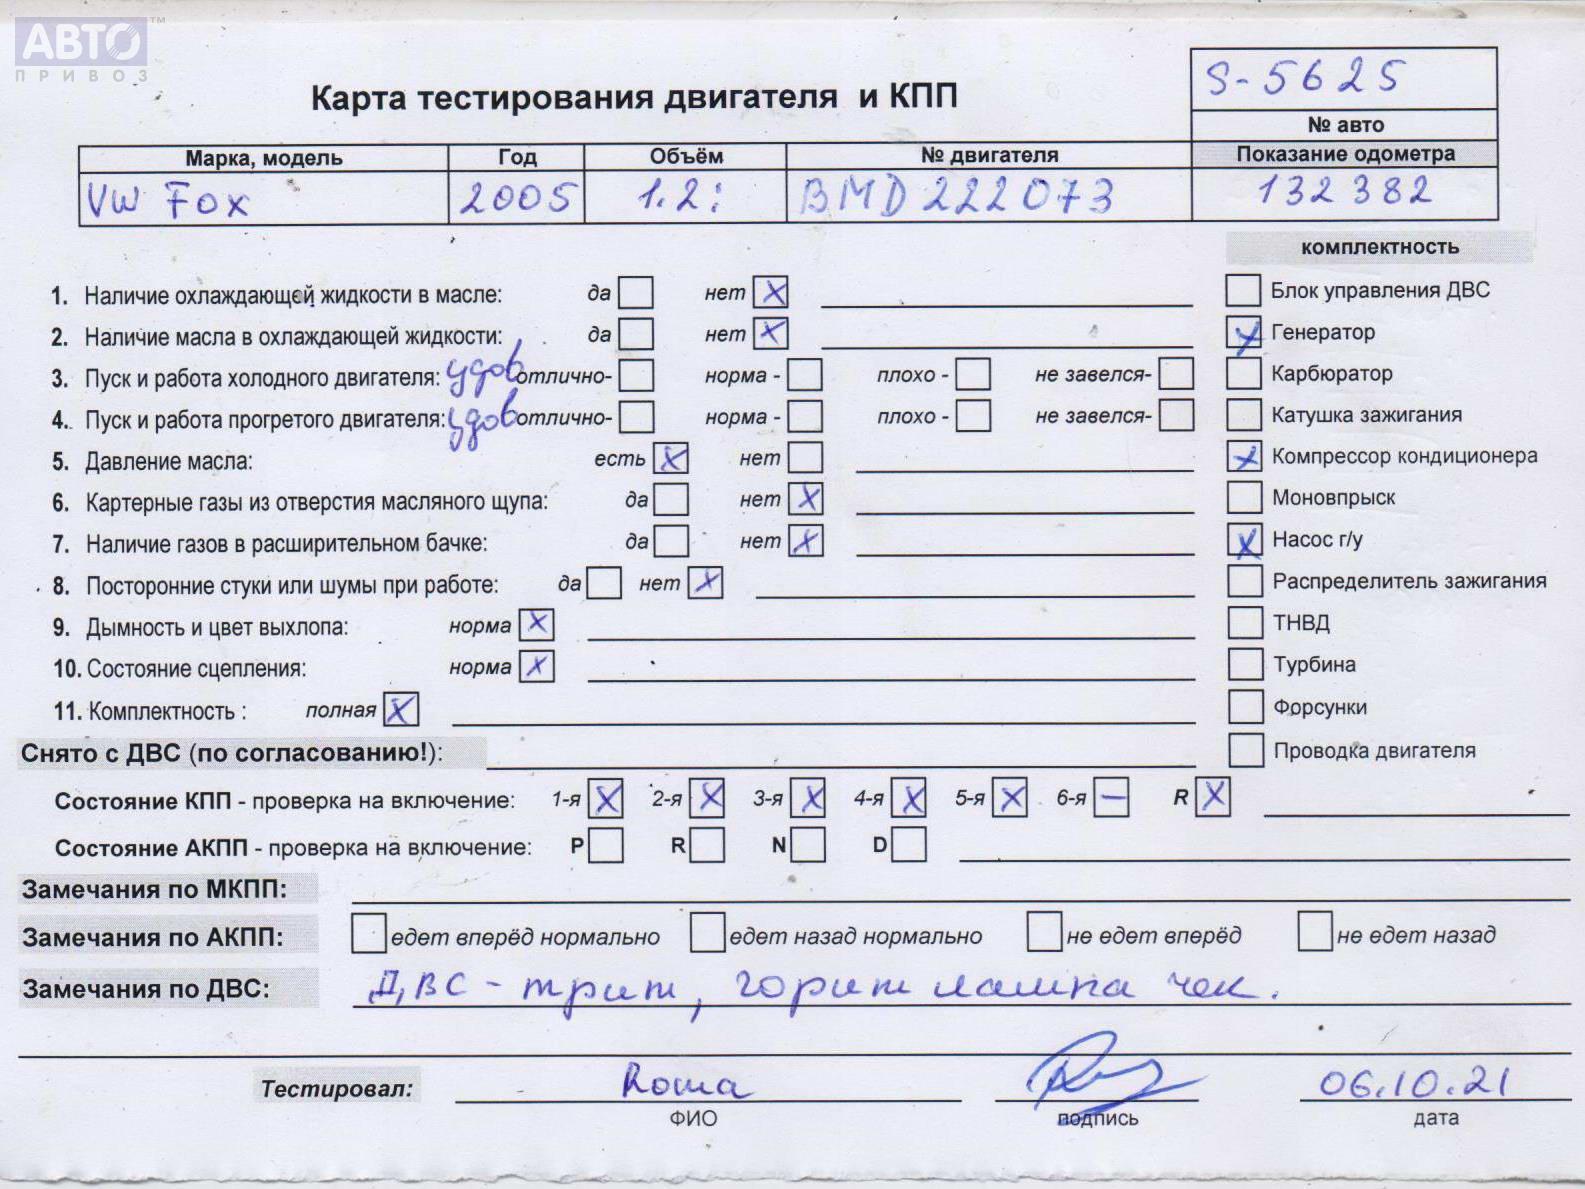 АВТО™
ПРИВОЗ
S-5625
Карта тестирования двигателя и КПП
№ авто
Марка, модель Год Объём № двигателя Показание одометра
VW Fox 2005 1.2i BMD 222073 132 382
комплектность
1. Наличие охлаждающей жидкости в масле: да нет X Блок управления ДВС
2. Наличие масла в охлаждающей жидкости: да нет X X Генератор
3. Пуск и работа холодного двигателя: удов отлично- норма - плохо - не завелся- Карбюратор
4. Пуск и работа прогретого двигателя: удов отлично- норма - плохо - не завелся- Катушка зажигания
5. Давление масла: есть X нет X Компрессор кондиционера
6. Картерные газы из отверстия масляного щупа: да нет X Моновпрыск
7. Наличие газов в расширительном бачке: да нет X X Насос г/у
8. Посторонние стуки или шумы при работе: да нет X Распределитель зажигания
9. Дымность и цвет выхлопа: норма X ТНВД
10. Состояние сцепления: норма X Турбина
11. Комплектность : полная X Форсунки
Снято с ДВС (по согласованию!): Проводка двигателя
Состояние КПП - проверка на включение: 1-я X 2-я X 3-я X 4-я X 5-я X 6-я — R X
Состояние АКПП - проверка на включение: P R N D
Замечания по МКПП:
Замечания по АКПП: едет вперёд нормально едет назад нормально не едет вперёд не едет назад
Замечания по ДВС: ДВС - троит, горит лампа чек.
Тестировал: Рома 06.10.21
ФИО подпись дата